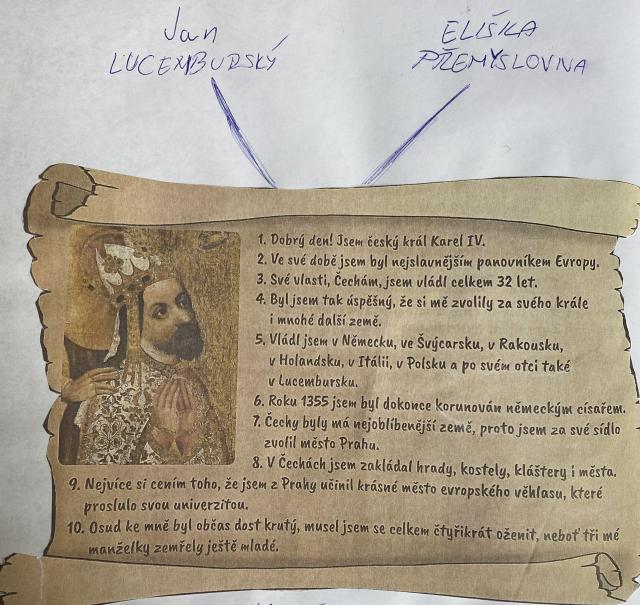 Jan
LUCEMBURSKÝ
ELIŠKA
PŘEMYSLOVNA
1. Dobrý den! Jsem český král Karel IV.
2. Ve své době jsem byl nejslavnějším panovníkem Evropy.
3. Své vlasti, Čechám, jsem vládl celkem 32 let.
4. Byl jsem tak úspěšný, že si mě zvolily za svého krále
i mnohé další země.
5. Vládl jsem v Německu, ve Švýcarsku, v Rakousku,
v Holandsku, v Itálii, v Polsku a po svém otci také
v Lucembursku.
6. Roku 1355 jsem byl dokonce korunován německým císařem.
7. Čechy byly má nejoblíbenější země, proto jsem za své sídlo
zvolil město Prahu.
8. V Čechách jsem zakládal hrady, kostely, kláštery i města.
9. Nejvíce si cením toho, že jsem z Prahy učinil krásné město evropského věhlasu, které
proslulo svou univerzitou.
10. Osud ke mně byl občas dost krutý, musel jsem se celkem čtyřikrát oženit, neboť tři mé
manželky zemřely ještě mladé.